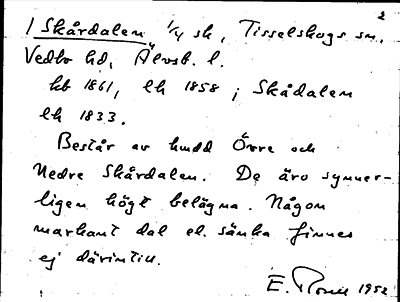 2
/ Skårdalen 1/4 sk, Tisselskogs sn,
Vedbo hd, Älvsb. l.
kb 1861, lh 1858 ; Skådalen
lh 1833.
Består av hmdd Övre och
Nedre Skårdalen. De äro synner-
ligen högt belägna. Någon
markant dal el. sänka finnes
ej därintill.
E. 1952